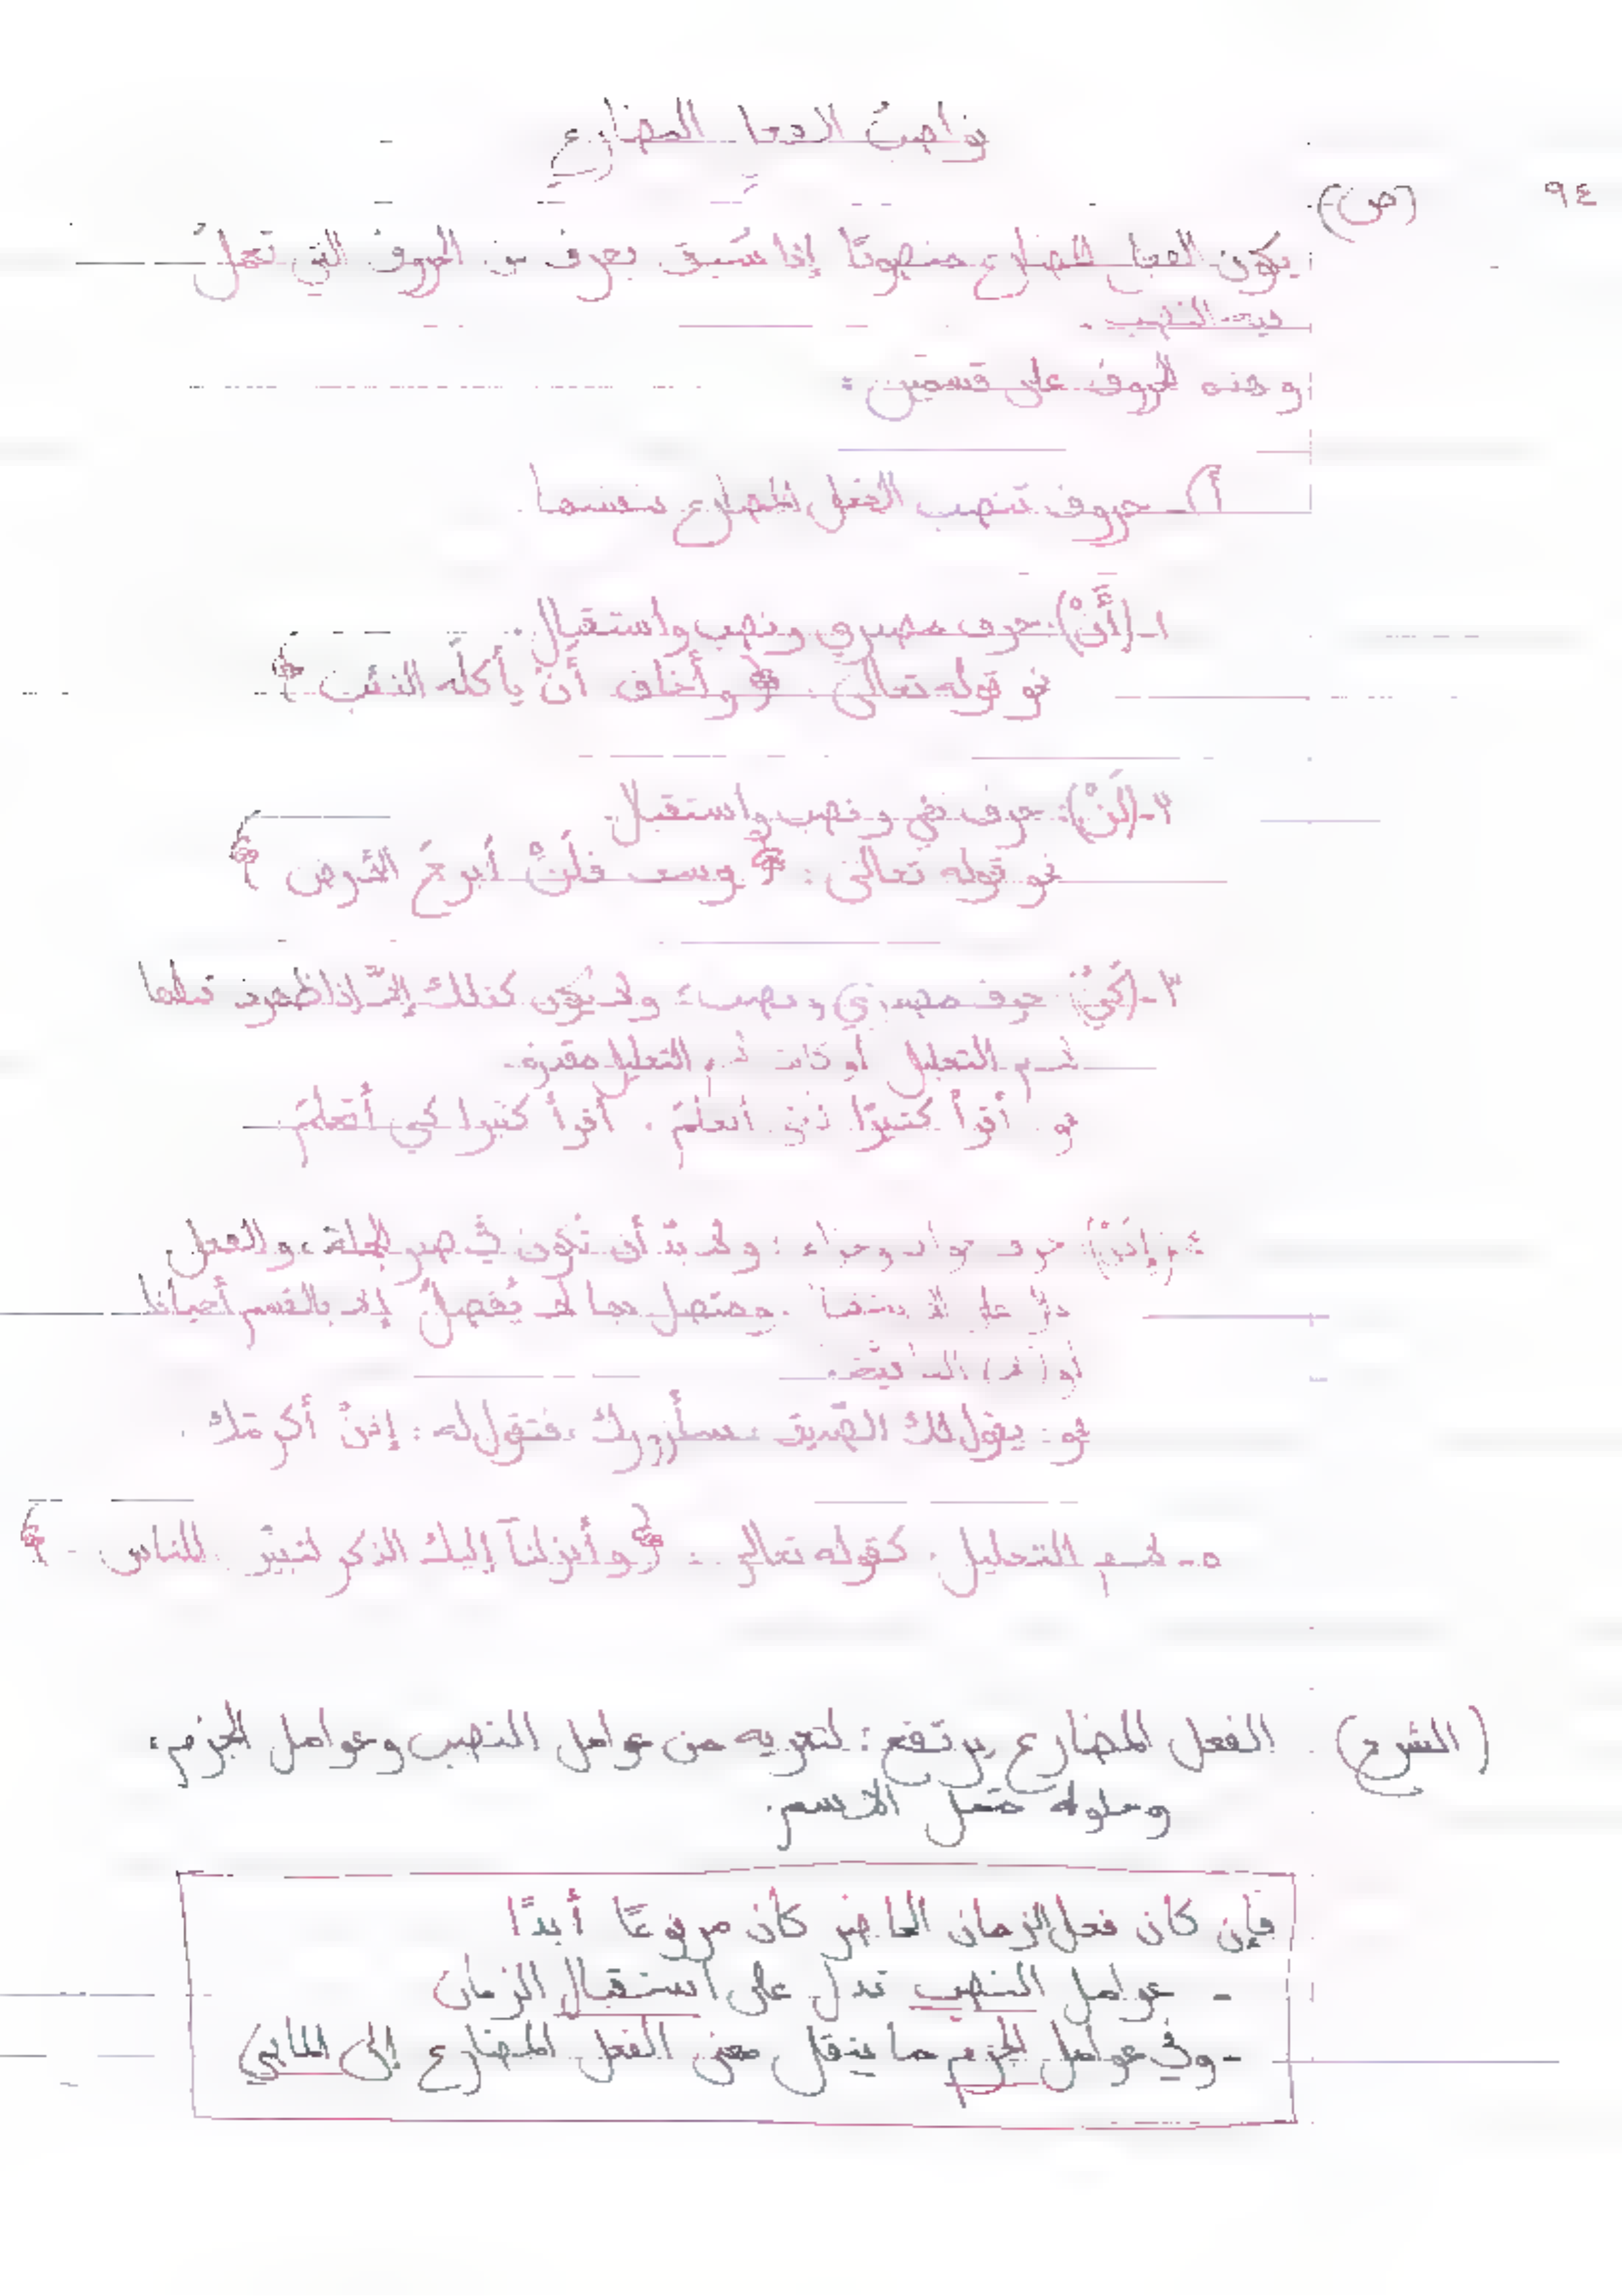 نواصبُ الفعل المضارع
٩٤
(ص)
يكون الفعل المضارع منصوبًا إذا سُبق بحرف من الحروف التي تعملُ
فيه النصب.
وهذه الحروف على قسمين:
أ) - حروف تنصب الفعل المضارع بنفسها
١- (أَنْ): حرف مصدري ونصب واستقبال.
نحو قوله تعالى: ﴿وأخاف أنْ يأكلَه الذئب﴾
٢- (لَنْ): حرف نفي ونصب واستقبال.
نحو قوله تعالى: ﴿فلَنْ أبرحَ الأرض﴾
٣- (كَيْ): حرف مصدري ونصب، ولا يكون كذلك إلّا إذا ظهرت قبلها
لام التعليل أو كانت لام التعليل مقدرة.
نحو: أقرأ كثيرًا لكي أتعلمَ. أقرأ كثيرا كي أتعلمَ.
٤- (إذَنْ): حرف جواب وجزاء: ولا بدّ أن تكون في صدر الجملة، والفعل
دالًّا على الاستقبال، ومتصل بها لا يُفصلُ إلا بالقسم أحيانا
أو (لا) النافية.
نحو: يقول لك الصّديق: سأزورك، فتقول له: إذنْ أكرمَك.
٥- لام التعليل: كقوله تعالى: ﴿وأنزلنآ إليك الذكر لتبيّن للناس﴾
(الشرح) الفعل المضارع يرتفع: لتعريه من عوامل النصب وعوامل الجزم،
وحلوله محل الاسم.
فإن كان فعل الزمان الحاضر كان مرفوعًا أبدًا
- عوامل النصب تدل على استقبال الزمان
- وفي عوامل الجزم ما ينقل معنى الفعل المضارع إلى الماضي